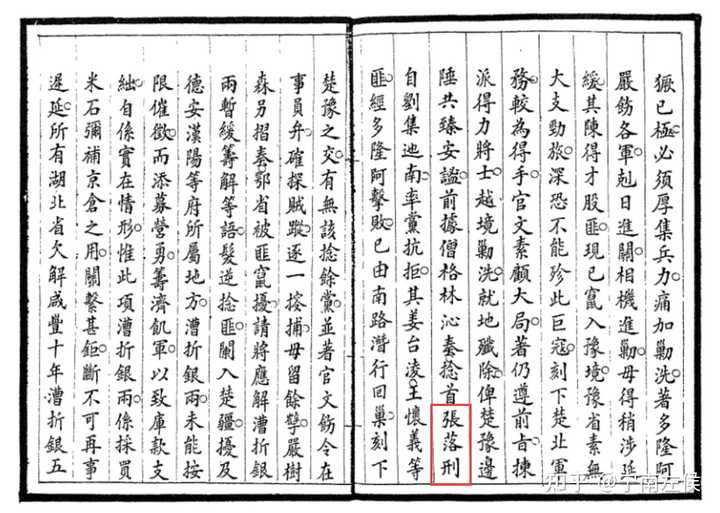 獗已極必須厚集兵力。痛加勦洗。著多隆阿
嚴飭各軍。剋日進關。相機進勦。毋得稍涉延
緩。其陳得才股匪。現已竄入豫境。豫省素無
大支勁旅。深恐不能殄此巨寇。刻下楚北軍
務。較為得手。官文素顧大局。著仍遵前旨揀
派得力將士。越境勦洗。就地殲除。俾楚豫邊
陲共臻安謐。前據僧格林沁奏捻首張落刑
自劉集迆南。率黨抗拒。其姜台淩。王懷義等
匪。經多隆阿擊敗。已由南路潛行回巢。刻下
楚豫之交。有無該捻餘黨。並著官文飭令在
事員弁。確探賊蹤。逐一搜捕。毋留餘孽。嚴樹
森另摺奏鄂省被匪竄擾。請將應解漕折銀
兩暫緩籌解等語。髮逆捻匪闌入楚疆。擾及
德安漢陽等府所屬地方。漕折銀兩。未能按
限催徵。而添募營勇。籌濟飢軍。以致庫款支
絀。自係實在情形。惟此項漕折銀兩。係採買
米石彌補京倉之用。關繫甚鉅。斷不可再事
遲延。所有湖北省欠解咸豐十年漕折銀五
知乎 @宁南左侯